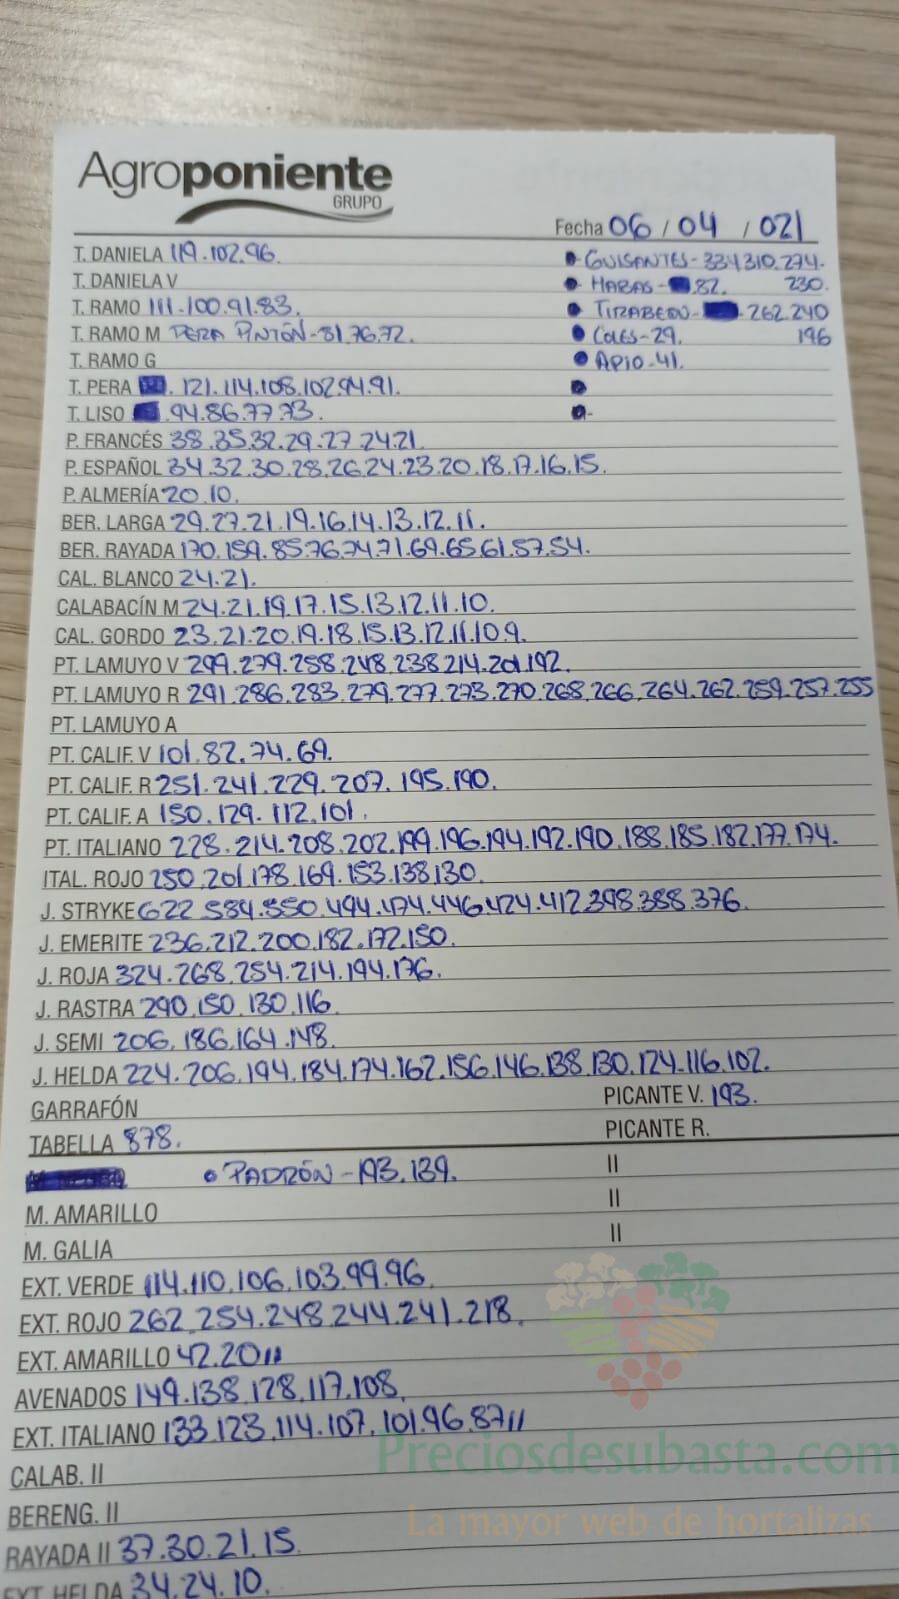 Agroponiente
GRUPO
Fecha 06 / 04 / 021
T. DANIELA 119.102.96.
• GUISANTES - 334.310.274.
T. DANIELA V
• HABAS - 82. 230.
T. RAMO 111-100.91.83.
• TIRABEQU - 262.240
T. RAMO M PERA PINTÓN - 81.76.72.
• COLES - 29. 196
T. RAMO G
• APIO - 41.
T. PERA . 121.114.108.102.94.91.
T. LISO .94.86.77.73.
P. FRANCÉS 38.35.32.29.27.24.21.
P. ESPAÑOL 34.32.30.28.26.24.23.20.18.17.16.15.
P. ALMERÍA 20.10.
BER. LARGA 29.27.21.19.16.14.13.12.11.
BER. RAYADA 170.159.85.76.74.71.69.65.61.57.54.
CAL. BLANCO 24.21.
CALABACÍN M 24.21.19.17.15.13.12.11.10.
CAL. GORDO 23.21.20.19.18.15.13.12.11.10.9.
PT. LAMUYO V 299.279.258.248.238.214.201.192.
PT. LAMUYO R 291.286.283.279.277.273.270.268.266.264.262.259.257.255
PT. LAMUYO A
PT. CALIF. V 101.82.74.69.
PT. CALIF. R 251.241.229.207.195.190.
PT. CALIF. A 150.129.112.101.
PT. ITALIANO 228.214.208.202.199.196.194.192.190.188.185.182.177.174.
ITAL. ROJO 250.201.178.169.153.138.130.
J. STRYKE 622.584.550.494.474.446.424.412.398.388.376.
J. EMERITE 236.212.200.182.172.150.
J. ROJA 324.268.254.214.194.176.
J. RASTRA 290.150.130.116.
J. SEMI 206.186.164.148.
J. HELDA 224.206.194.184.174.162.156.146.138.130.124.116.102.
GARRAFÓN PICANTE V. 193.
TABELLA 878. PICANTE R.
• PADRÓN - 193.139. II
M. AMARILLO II
M. GALIA II
EXT. VERDE 114.110.106.103.99.96.
EXT. ROJO 262.254.248.244.241.218.
EXT. AMARILLO 42.20 11
AVENADOS 149.138.128.117.108.
EXT. ITALIANO 133.123.114.107.101.96.87 11
Preciosdesubasta.com
CALAB. II
La mayor web de hortalizas
BERENG. II
RAYADA II 37.30.21.15.
EXT. HELDA 34.24.10.